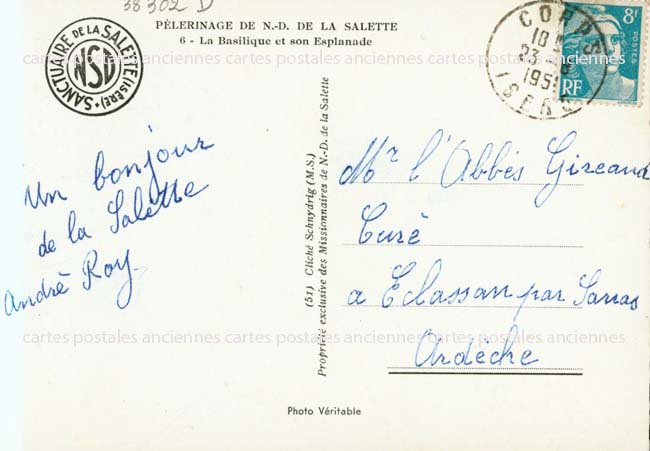 38302 D
PÈLERINAGE DE N.-D. DE LA SALETTE
6 - La Basilique et son Esplanade
SANCTUAIRE DE LA SALETTE (ISÈRE)
NSD
CORPS
18
195
ISERE
8F
POSTES
RF
cartes postales anciennes cartes postales anciennes cartes postales anciennes
Un bonjour
de la Salette
André Roy
(51) Cliché Schnydrig (M.S.)
Propriété exclusive des Missionnaires de N.-D. de la Salette
Mr l'Abbés Gireaud
Curè
a Eclassan par Sarras
Ardèche
cartes postales anciennes cartes postales anciennes cartes postales anciennes
Photo Véritable